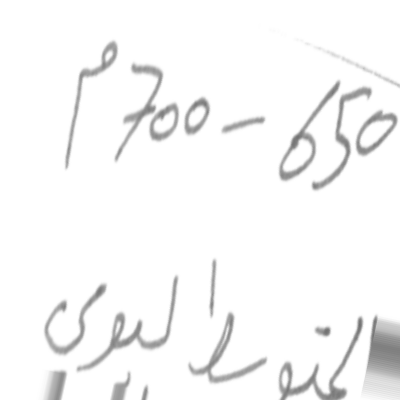 650 - 700 م
المتوسط اليومي